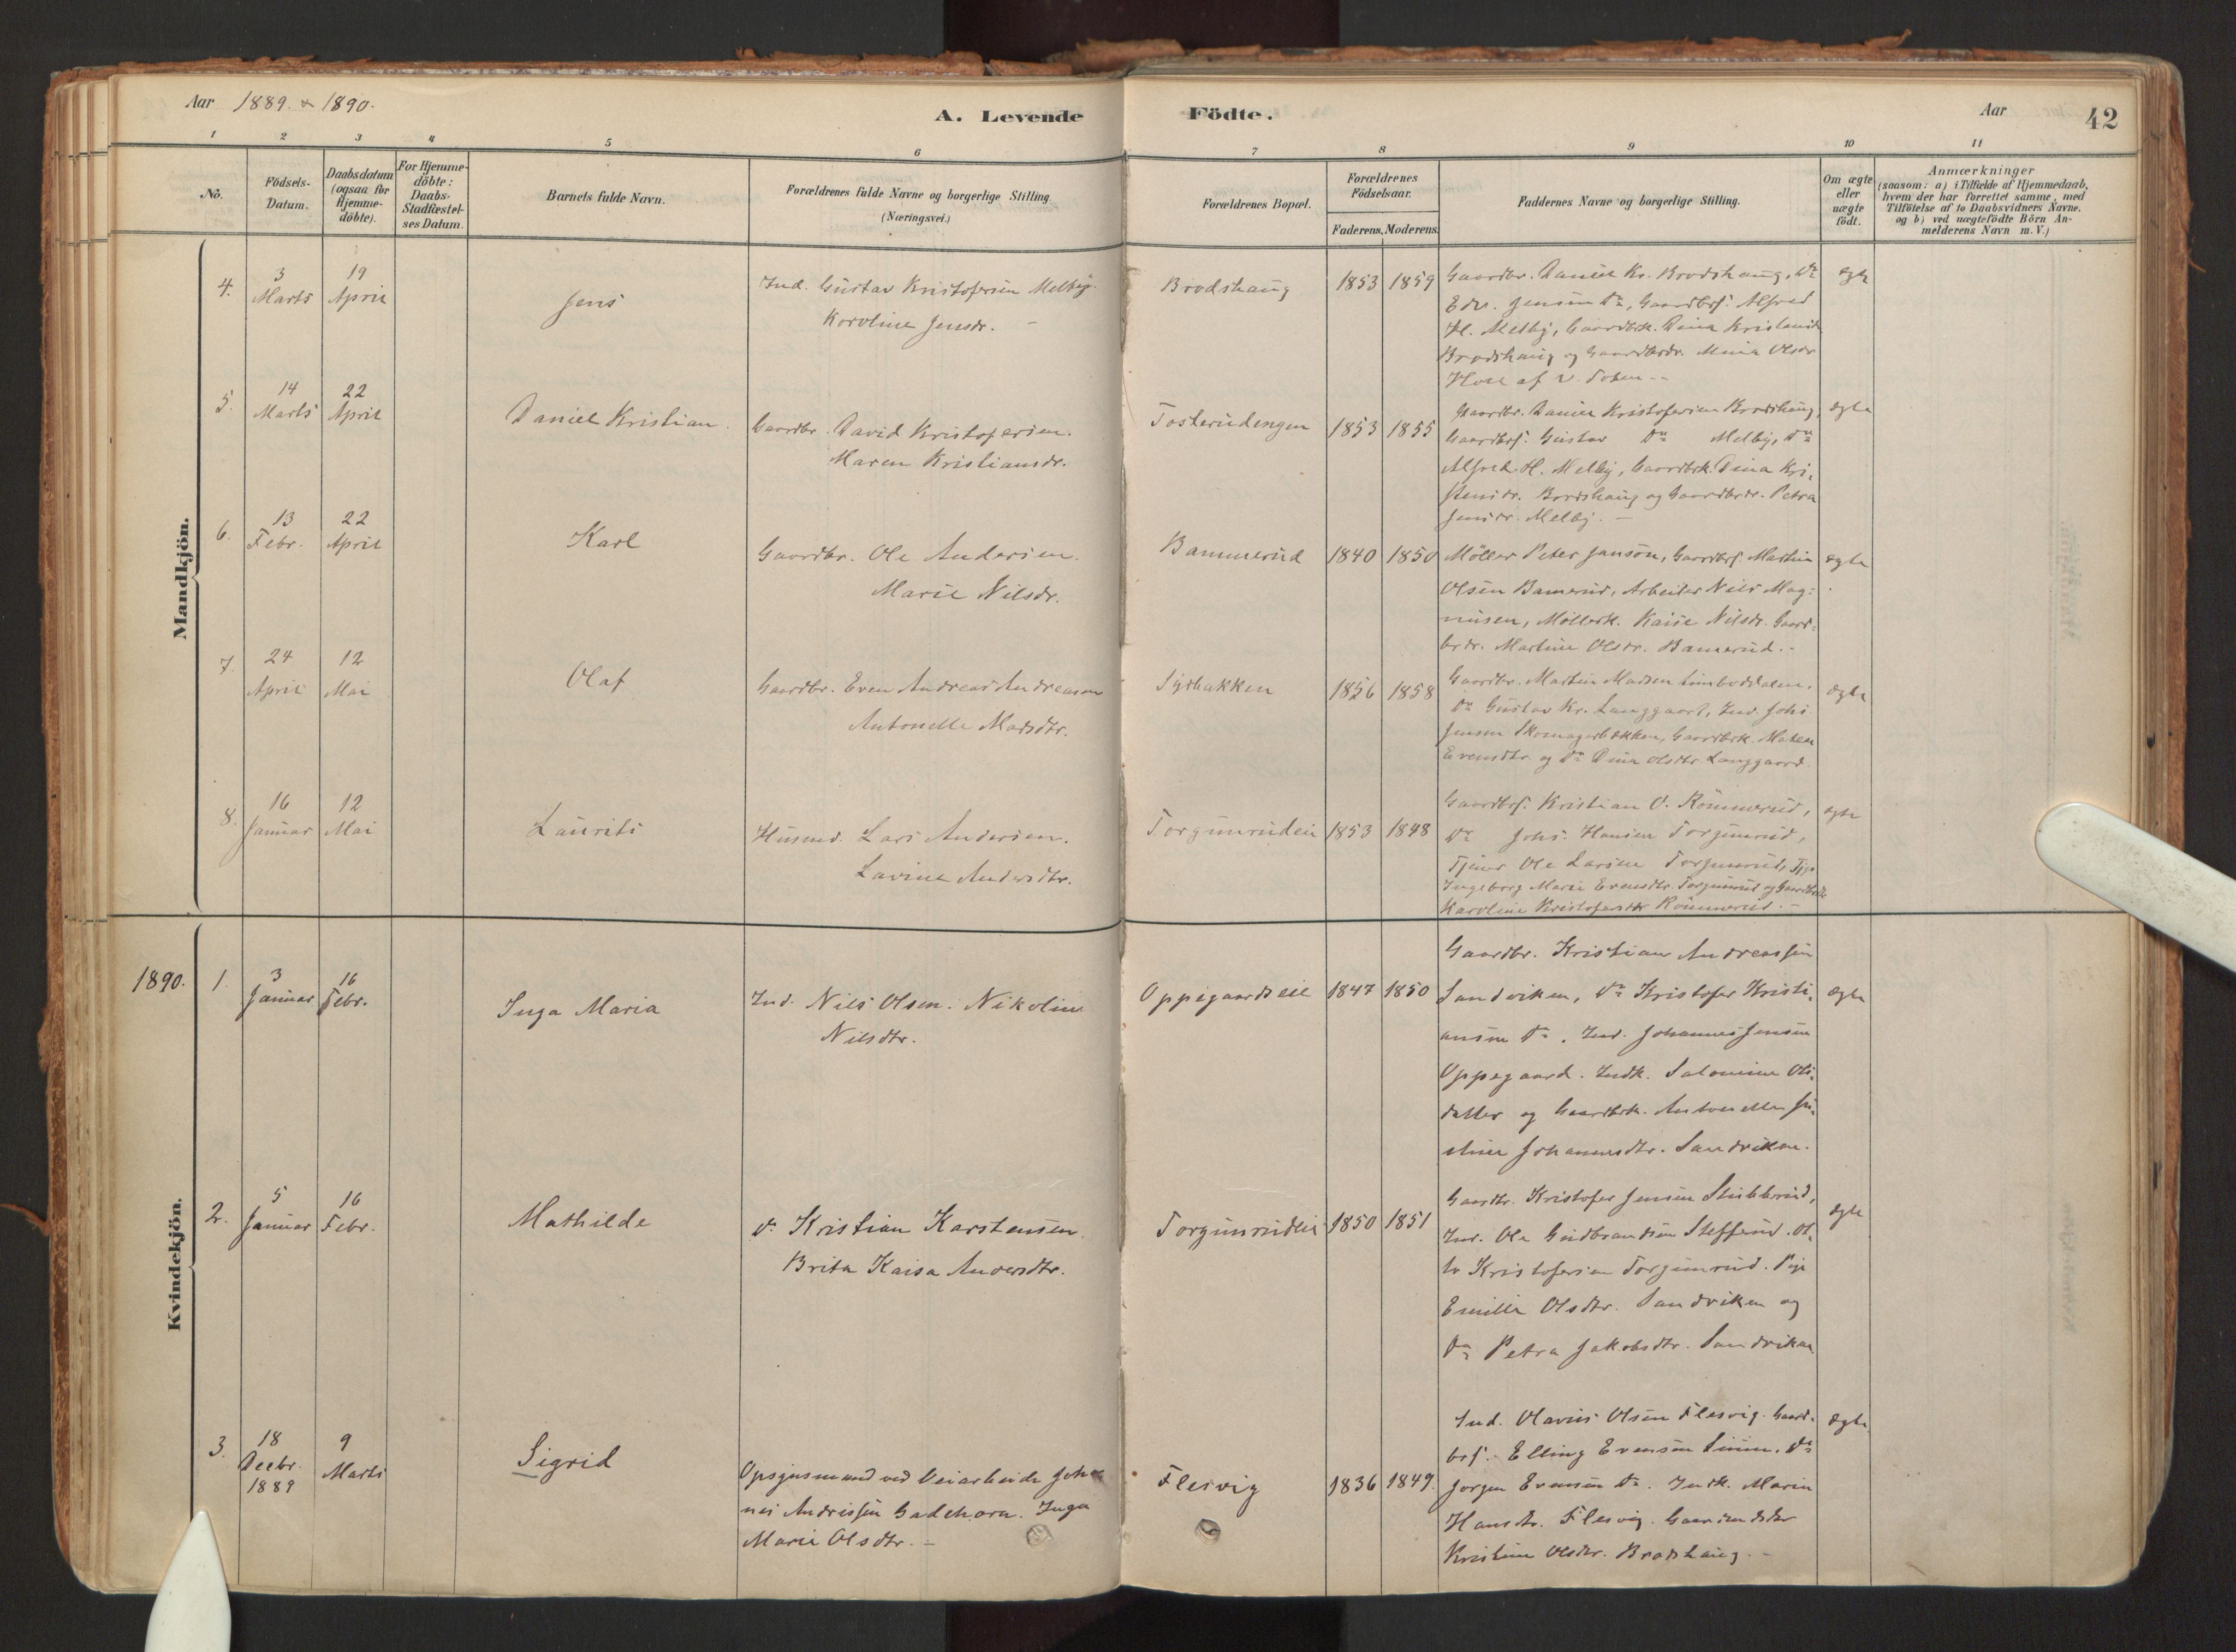 Aar 1889 & 1890.
A. Levende Födte.
Aar
42
1 2 3 4 5 6 7 8 9 10 11
No.
Födsels-Datum.
Daabsdatum (ogsaa for Hjemme-döbte).
For Hjemme-döbte: Daabs-Stadfæstel-ses Datum.
Barnets fulde Navn.
Forældrenes fulde Navne og borgerlige Stilling.
(Næringsvei.)
Forældrenes Bopæl.
Forældrenes Födselsaar.
Faderens. Moderens.
Faddernes Navne og borgerlige Stilling.
Om ægte eller uægte födt.
Anmærkninger
(saasom: a) i Tilfælde af Hjemmedaab,
hvem der har forrettet samme, med
Tilföielse af to Daabsvidners Navne,
og b) ved uægtefödte Börn An-
melderens Navn m. V.)
Mandkjön.
4.
3 Marts
19 April
Jens
Ind. Gustav Kristofersen Melby.
Karoline Jensdr. –
Brodshaug
1853 1859
Gaardbr. Daniel Kr. Brodshaug, Do
Edv. Jensen Do, Gaardbrs. Alfred
H. Melby, Gaardbrk. Dina Kristensdr.
Brodshaug og Gaardbrdr. Mina Olsdr
af V. Toten --
ægte
5.
14 Marts
22 April
Daniel Kristian.
Gaardbr. David Kristofersen.
Maren Kristiansdr.
Tosterudengen
1853 1855
Gaardbr. Daniel Kristofersen Brodshaug,
Gaardbrs. Gustav Do Melby, Do
Alfred H. Melby, Gaardbrk. Dina Kri-
stensdr. Brodshaug og Gaardbrdr. Petra
Jensdr. Melby. –
ægte
6.
13 Febr.
22 April
Karl
Gaardbr. Ole Andersen.
Marie Nilsdr.
Bammerud
1840 1850
Möller Peter Janson, Gaardbrs. Martin
Olsen Bamerud, Arbeider Nils Mag-
nusen, Möllerk. Kaise Nilsdr. Gaard-
brdr. Martine Olsdr. Bamerud. -
ægte
7.
24 April
12 Mai
Olaf
Gaardbr. Even Andreas Andreasen
Antonette Madsdtr.
Syrbakken
1856 1858
Gaardbr. Martin Madsen
Do Gustav Kr. Langgaard, Ind. Johs
Jensen Skomagerbakken, Gaardbrk. Maren
Evensdtr og Do Dina Olsdtr Langgaard
ægte
8.
16 Januar
12 Mai
Laurits
Husmd. Lars Andersen.
Lavine Andersdtr.
Torgunrudeie
1853 1848
Gaardbrs. Kristian O. Römmerud,
Do Johs. Hansen Torgunrud,
Tjener Ole Larsen Torgunrud,
Ingeborg Marie Evensdtr. Torgunrud og
Karoline Kristofersdtr Römmerud. –
ægte
Kvindekjön.
1890.
1.
3 Januar
16 Febr.
Inga Maria
Ind. Nils Olsen. Nikoline
Nilsdtr.
Oppegaardseie
1847 1850
Gaardbr. Kristian Andreassen
Sandviken, Do Kristofer Kristi-
ansen Do. Ind. Johannes Jensen
Oppegaard. Indk. Salomine Ols-
datter og Gaardbrk. Antonette
Johannesdtr. Sandviken.
ægte
2.
5 Januar
16 Febr.
Mathilde
Do Kristian Karstensen.
Brita Kaisa Andersdtr.
Torgunrudeie
1850 1851
Gaardbr. Kristofer Jensen Stubberud,
Ind. Ole Gudbrandsen Steffenrud. Ot-
to Kristofersen Torgunrud. Pige
Emilie Olsdtr. Sandviken og
Do Petra Jakobsdtr. Sandviken
ægte
3.
18 Decbr. 1889
9 Marts
Sigrid
Opsynsmand ved Veiarbeide Johan-
nes Andreassen Gadehorn. Inga
Marie Olsdtr. –
Flesvig
1836 1849.
Ind. Olavus Olsen Flesvig. Gaard-
brs. Elling Evensen Do
Jörgen Evensen Do. Indk. Maria
Hansdtr. Flesvig.
Kristine Olsdtr. Brodshaug. –
ægte